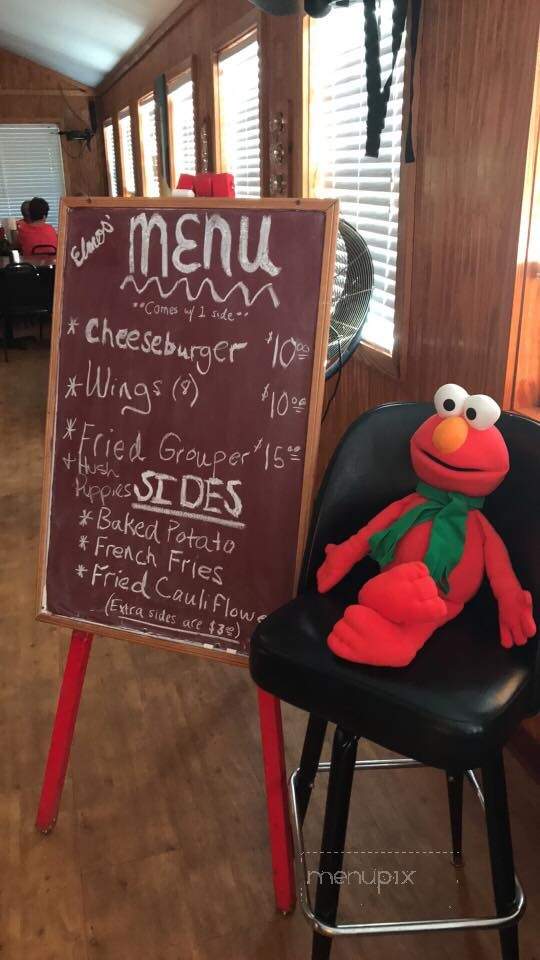 Elmo's'
MENU
**Comes w/ 1 side**
* Cheeseburger $10.00
* Wings (8) $10.00
* Fried Grouper $15.00
+ Hush
Puppies
SIDES
* Baked Potato
* French Fries
* Fried Cauliflowe
(Extra sides are $3.00)
menupix